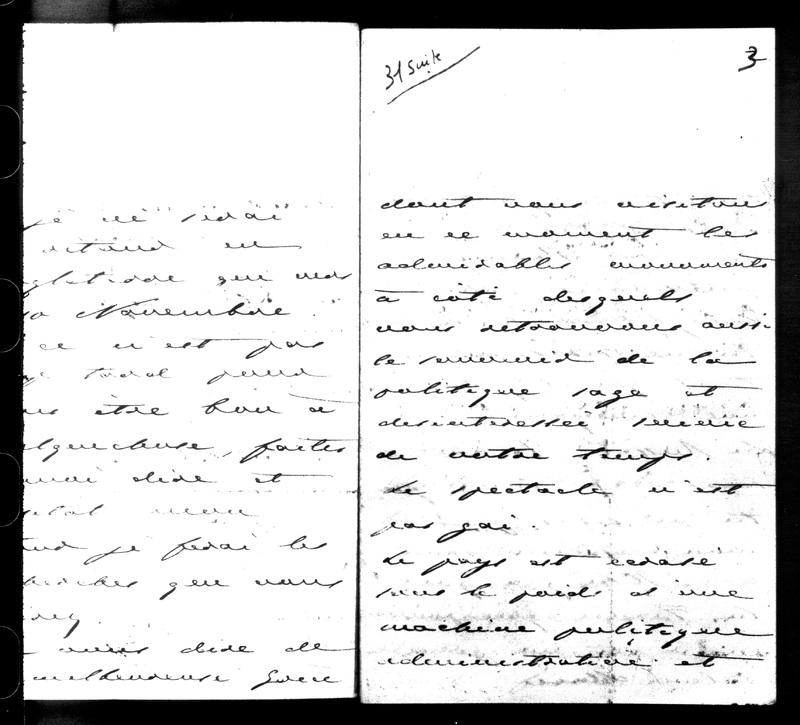 je ne serai
attend en
que vers
Novembre.
ce n'est pas
tard pour
être bon à
quelque chose, faites
dire et
mon
je ferai les
que vous
dire de
malheureuse Grèce
31 Suite
3
dont nous visitons
en ce moment les
admirables monuments
à côté desquels
nous retrouvons aussi
le souvenir de la
politique sage et
désintéressée suivie
de notre temps.
Le spectacle n'est
pas gai.
Le pays est écrasé
sous le poids d'une
machine politique
administrative et